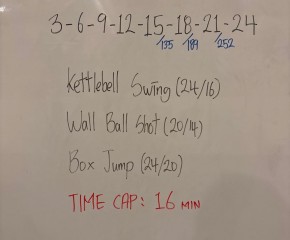 3-6-9-12-15-18-21-24
135 189 252
Kettlebell Swing (24/16)
Wall Ball Shot (20/14)
Box Jump (24/20)
TIME CAP: 16 MIN